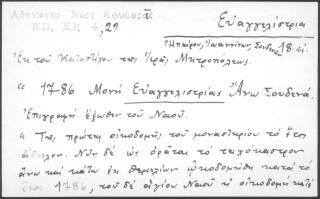 Ἀθέσατος Νέος Κουβαρᾶς
ΗΠ. ΧΡ. 4, 29
Εὐαγγελίστρια
Ἠπείρου, Ἰωαννίνων, Σουδενά 18. αἰ.
Ἐκ τοῦ Καταστίχου τῆς Ἱερᾶς Μητροπόλεως.
" 1786 Μονή Εὐαγγελιστρίας Ἄνω Σουδενά.
Ἐπιγραφή ἔξωθεν τοῦ Ναοῦ.
" Τῆς πρώτης οἰκοδομῆς τοῦ μοναστηρίου τό ἔτος
ἄδηλον. Νῦν δέ ὡς ὁρᾶται τό τειχόκαστρον
ἄνω καί κάτω ἐκ θεμελίων ᾠκοδομήθη κατά τό
ἔτος 1786, τοῦ δέ ἁγίου Ναοῦ ἡ οἰκοδομή κατά